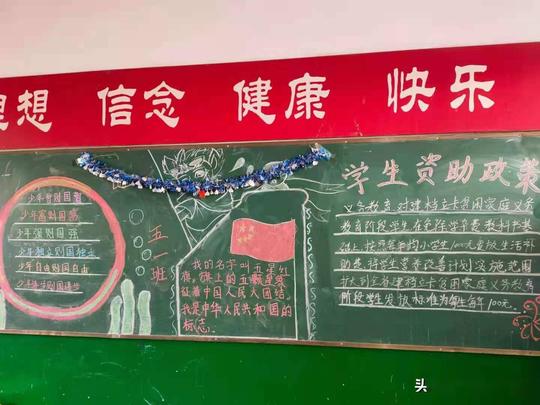 理想 信念 健康 快乐
学生资助政策
少年智则国智
少年富则国富
少年强则国强
少年独立则国独立
少年自由则国自由
少年进步则国进步
五一班
我的名字叫五星红
旗,旗上的五颗星象
征着中国人民大团结,
我是中华人民共和国的
标志。
义务教育对建档立卡贫困家庭义务
教育阶段学生在免除学杂费教科书基
础上,按照每年每小学生1000元发放生活补
助费,将学生营养改善计划实施范围
扩大到
建档立卡贫困家庭义务教育
阶段学生发放标准为每生每年 元。
头